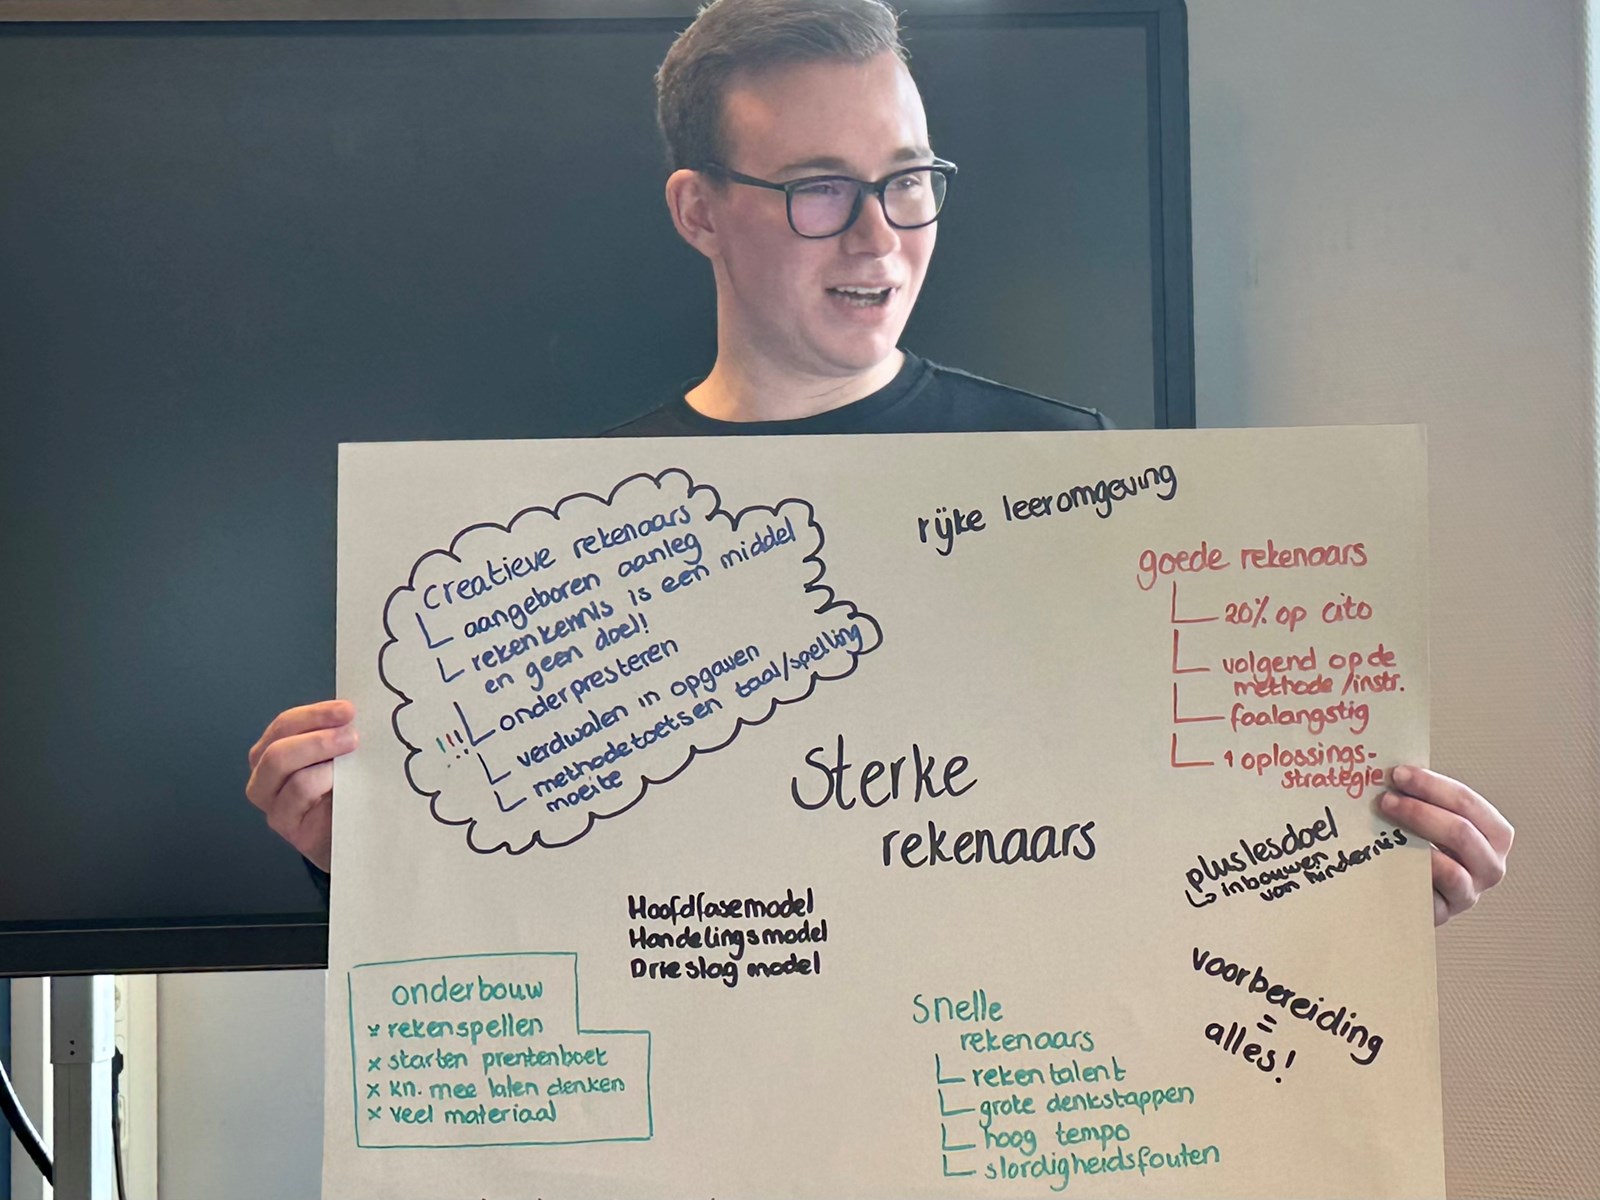 Creatieve rekenaars
aangeboren aanleg
rekenkennis is een middel
en geen doel!
!!! onderpresteren
verdwalen in opgaven
methodetoetsen taal/spelling
moeite
rijke leeromgeving
goede rekenaars
20% op cito
volgend op de
methode/instr.
faalangstig
1 oplossings-
strategie
Sterke
rekenaars
pluslesdoel
↳ inbouwen
van hindernis
Hoofdfasemodel
Handelingsmodel
Drieslag model
voorbereiding
=
alles!
onderbouw
x rekenspellen
x starten prentenboek
x kn. mee laten denken
x veel materiaal
Snelle
rekenaars
rekentalent
grote denkstappen
hoog tempo
slordigheidsfouten